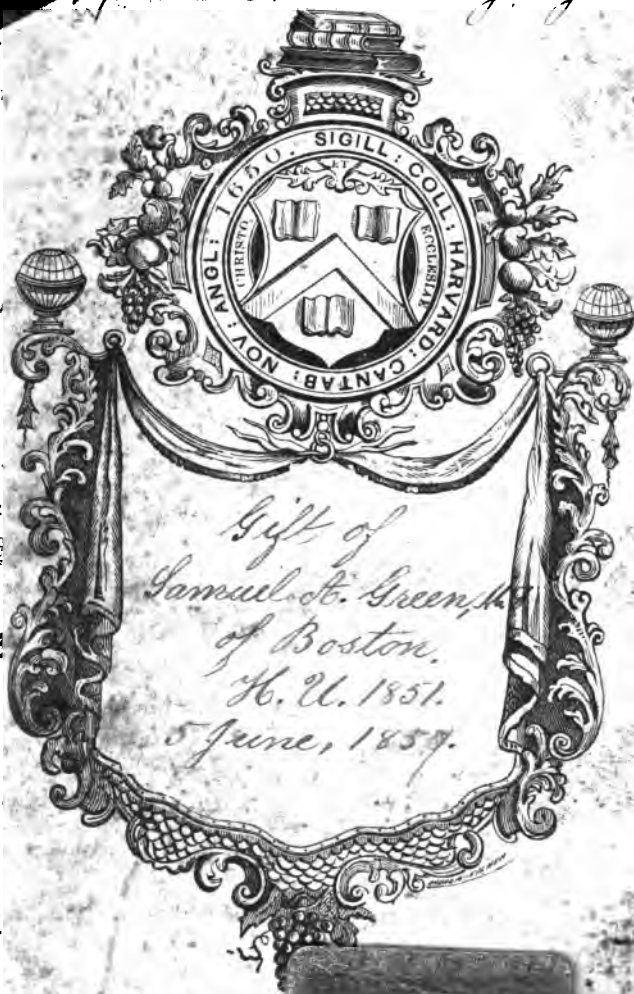 SIGILL: COLL: HARVARD: CANTAB: NOV: ANGL: 1650.
ET
CHRISTO
ECCLESIAE
Gift of
Samuel A. Green, M.D.
of Boston.
H. U. 1851.
5 June, 1857.